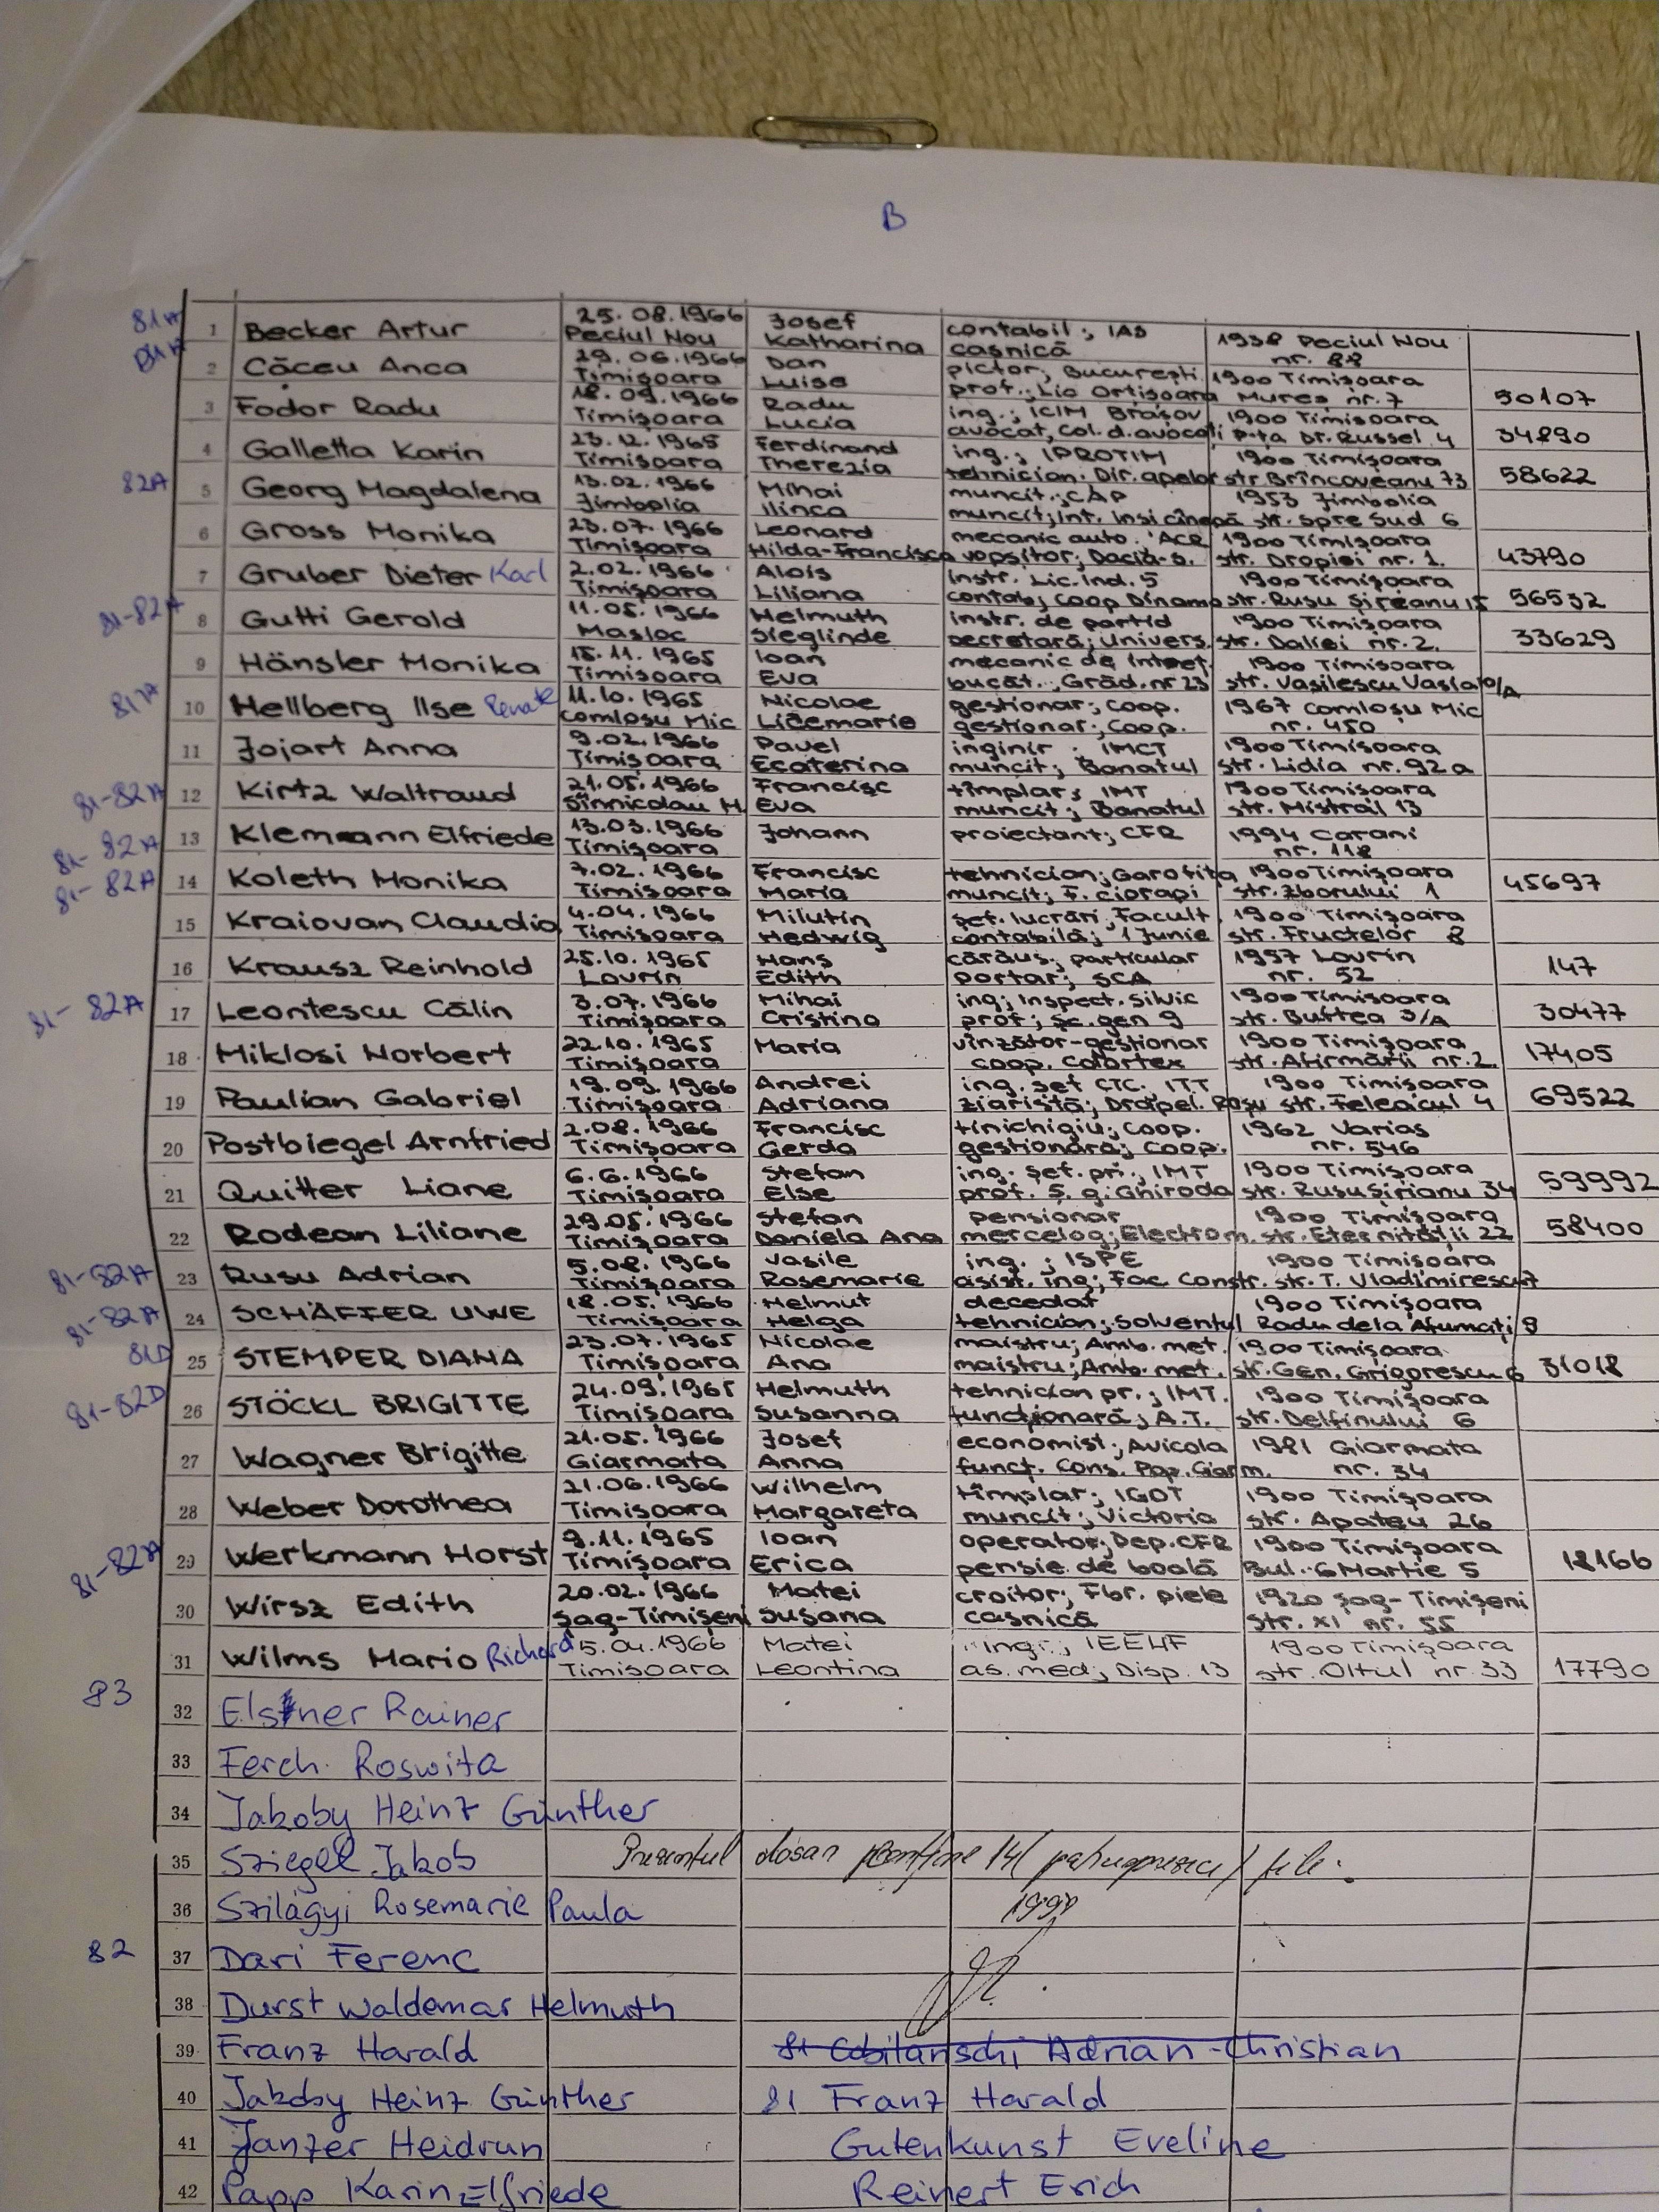 B
81A 1 Becker Artur 25.08.1966 Peciul Nou Josef Katharina contabil; IAS casnică 1938 Peciul Nou nr. 88
81A 2 Căceu Anca 29.06.1966 Timişoara Dan Luise pictor; Bucureşti prof.; Lic Ortişoara 1900 Timişoara Mureş nr. 7 50107
3 Fodor Radu 18.09.1966 Timişoara Radu Lucia ing.; ICIM Braşov avocat, Col. d. avocaţi 1900 Timişoara p-ţa Dr. Russel 4 34890
4 Galletta Karin 23.12.1965 Timişoara Ferdinand Therezia ing.; IPROTIM tehnician. Dir. apelor 1900 Timişoara str Brîncoveanu 73 58622
82A 5 Georg Magdalena 13.02.1966 Jimbolia Mihai Ilinca muncit.; CAP muncit; Int. Insi cînepă 1953 Jimbolia str. spre Sud 6
6 Gross Monika 23.07.1966 Timişoara Leonard Hilda-Francisca mecanic auto. ACR vopsitor; Dacia-s. 1900 Timişoara str. Dropiei nr. 1. 43790
7 Gruber Dieter Karl 2.02.1966 Timişoara Alois Liliana instr. Lic. Ind. 5 contab; Coop Dinamo 1900 Timişoara str. Rusu Şireanu 15 56532
81-82A 8 Gutti Gerold 11.05.1966 Masloc Helmuth Sieglinde instr. de partid secretară; Univers. 1900 Timişoara str. Daliei nr. 2. 33629
9 Hänsler Monika 15.11.1965 Timişoara Ioan Eva mecanic de întreţ. bucăt.. Grăd. nr 23 1900 Timişoara str. Vasilescu Vasia
81A 10 Hellberg Ilse Renate 11.10.1965 Comloşu Mic Nicolae Licemarie gestionar; Coop. gestionar; Coop. 1967 Comloşu Mic nr. 450
11 Jojart Anna 9.02.1966 Timişoara Pavel Ecaterina inginir. IMCT muncit; Banatul 1900 Timişoara str. Lidia nr. 92a
81-82A 12 Kirtz Waltraud 21.05.1966 Sînnicolau M. Francisc Eva tîmplar; IMT muncit; Banatul 1900 Timişoara str. Mistral 13
81-82A 13 Klemann Elfriede 13.03.1966 Timişoara Johann proiectant; CFR 1994 Carani nr. 118
81-82A 14 Koleth Monika 7.02.1966 Timişoara Francisc Maria tehnician; Garofiţa muncit; F. ciorapi 1900 Timişoara str. Zborului 1 45697
15 Kraiovan Claudia 4.04.1966 Timişoara Milutin Hedwig şef. lucrări, Facult. contabilă; 1 Junie 1900 Timişoara str. Fructelor 8
16 Krausz Reinhold 25.10.1965 Lovrin Hans Edith cărăuş. particular portar; SCA 1957 Lovrin nr. 52 147
81-82A 17 Leontescu Călin 3.07.1966 Timişoara Mihai Cristina ing; Inspect. Silvic prof; Sc. gen 9 1900 Timişoara str. Buftea 3/A 30477
18 Miklosi Norbert 22.10.1965 Timişoara Maria vînzător-gestionar coop. Colortex 1900 Timişoara str. Afirmării nr. 2 17405
19 Paulian Gabriel 19.09.1966 Timişoara Andrei Adriana ing. şef CTC. ITT ziaristă; Drapel. Roşu 1900 Timişoara str. Feleacul 4 69522
20 Postbiegel Arnfried 2.08.1966 Timişoara Francisc Gerda tinichigiu; Coop. gestionară; Coop. 1962 Varias nr. 546
21 Quitter Liane 6.6.1966 Timişoara Stefan Else ing. şef. pr.; IMT prof. S. g. Ghiroda 1900 Timişoara str. Rusu Şirianu 34 59992
22 Rodean Liliane 29.05.1966 Timişoara Stefan Daniela Ana pensionar mercelog; Electrom. 1900 Timişoara str. Eternităţii 22 58400
81-82A 23 Rusu Adrian 5.08.1966 Timişoara Vasile Rosemarie ing.; ISPE asist. ing; Fac Constr. 1900 Timişoara str. T. Vladimirescu 7
81-82A 24 SCHÄFFER UWE 18.05.1966 Timişoara Helmut Helga decedat tehnician; Solventul 1900 Timişoara Radu dela Afumaţi 9
81D 25 STEMPER DIANA 23.07.1965 Timişoara Nicolae Ana maistru; Amb. met. maistru; Amb. met. 1900 Timişoara str. Gen. Grigorescu 6 31018
81-82D 26 STÖCKL BRIGITTE 24.09.1965 Timişoara Helmuth Susanna tehnician pr.; IMT. funcţionară; A.T. 1900 Timişoara str. Delfinului 6
27 Wagner Brigitte 21.05.1966 Giarmata Josef Anna economist; Avicola funcţ. Cons. Pop. Giarm. 1981 Giarmata nr. 34
28 Weber Dorothea 21.06.1966 Timişoara Wilhelm Margareta tîmplar; IGOT muncit; Victoria 1900 Timişoara str. Apateu 26
81-82A 29 Werkmann Horst 9.11.1965 Timişoara Ioan Erica operator; Dep. CFR pensie de boală 1900 Timişoara Bul. 6 Martie 5 18166
30 Wirsz Edith 20.02.1966 Şag-Timişeni Matei Susana croitor; Fbr. piele casnică 1920 Şag-Timişeni Str. XI nr. 55
31 Wilms Mario Richard 5.04.1966 Timisoara Matei Leontina ing.; IEELIF as. med; Disp. 13 1900 Timişoara str. Oltul nr. 33 17790
83 32 Elsner Rainer
33 Ferch Roswita
34 Jakoby Heinz Günther
35 Sziegel Jakob Prezentul dosar conţine 14 (patrusprezece) file.
36 Szilágyi Rosemarie Paula 1990
82 37 Dari Ferenc
38 Durst Waldemar Helmuth
39 Franz Harald 81 Cobilanschi Adrian-Christian
40 Jakoby Heinz Günther 81 Franz Harald
41 Janzer Heidrun Gutenkunst Eveline
42 Papp Karin Elfriede Reinert Erich